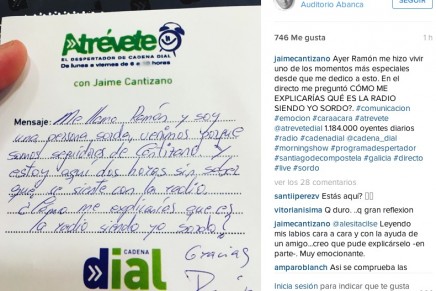 Atrévete
EL DESPERTADOR DE CADENA DIAL
De lunes a viernes de 6 a horas
con Jaime Cantizano
Mensaje: Me llamo Ramón y soy
una persona sorda, venimos porque
somos seguidores de Cantizano y
estoy aquí dos horas sin saber
que se siente con la radio.
¿Cómo me explicarías que es
la radio siendo yo sordo?
Gracias
CADENA
dial
Auditorio Abanca
SEGUIR
746 Me gusta
jaimecantizano Ayer Ramón me hizo vivir
uno de los momentos más especiales
desde que me dedico a esto. En el
directo me preguntó CÓMO ME
EXPLICARÍAS QUÉ ES LA RADIO
SIENDO YO SORDO?. #comunicacion
#emocion #caraacara #atrevete
@atrevetedial 1.184.000 oyentes diarios
#radio #cadenadial @cadena_dial
#morningshow #programadespertador
#santiagodecompostela #galicia #directo
#live #sordo
ver los 28 comentarios
santiiperezv Estás aquí?
vitorianisima Q duro. ..q gran reflexion
jaimecantizano @alesitaclise Leyendo mis
labios cara a cara y con la ayuda de
un amigo...creo que pude explicárselo -en
parte-. Muy emocionante.
amparoblanch Asi se comprueba las
Inicia sesión para indicar que te gusta